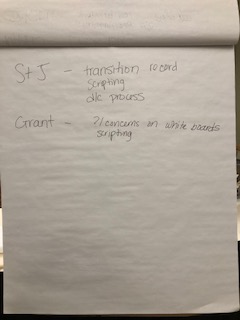 St J - transition record
scripting
d/c process
Grant - ?/concerns on white boards
scripting